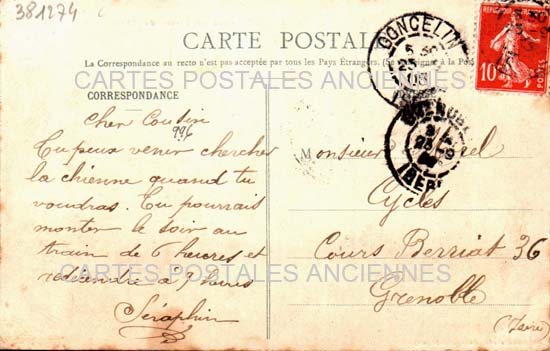 381274
CARTE POSTALE
La Correspondance au recto n'est pas acceptée par tous les Pays Étrangers. (Se renseigner à la Poste
CARTES POSTALES ANCIENNES
CORRESPONDANCE
GONCELIN
10
POSTES
Cher Cousin
996
Tu peux venir chercher
la chienne quand tu
voudras. Tu pourrais
monter le soir au
train de 6 heures et
redescendre à 9 heures
Séraphin
Monsieur
Cycles
Cours Berriat 36
Grenoble
(Isère)
CARTES POSTALES ANCIENNES